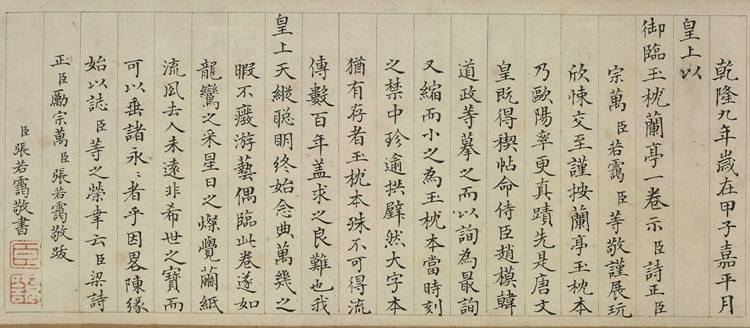 乾隆九年歲在甲子嘉平月
皇上以
御臨玉枕蘭亭一卷示臣詩正臣
宗萬臣若靄臣等敬謹展玩
欣悚交至謹按蘭亭玉枕本
乃歐陽率更真蹟先是唐文
皇既得禊帖命侍臣趙模韓
道政等摹之而以詢為最詢
又縮而小之為玉枕本當時刻
之禁中珍逾拱璧然大字本
猶有存者玉枕本殊不可得流
傳數百年盖求之良難也我
皇上天縱聰明終始念典萬幾之
暇不癈游藝偶臨此卷遂如
龍鸞之采星日之燦覺繭紙
流風去人未遠非希世之寶而
可以垂諸永〻者乎因畧陳緣
始以誌臣等之榮幸云臣梁詩
正臣勵宗萬臣張若靄敬跋
臣張若靄敬書